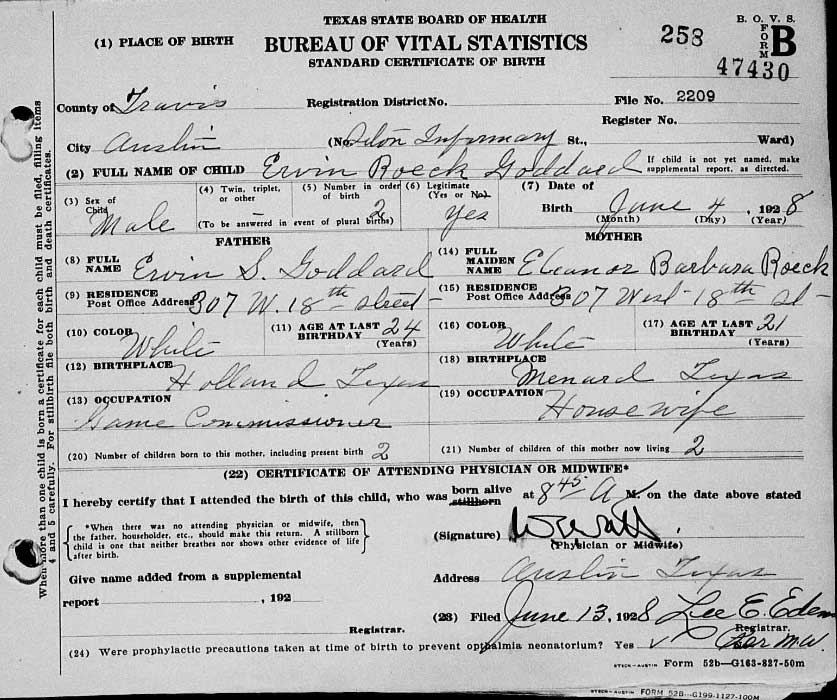 TEXAS STATE BOARD OF HEALTH
B. O. V. S.
(1) PLACE OF BIRTH BUREAU OF VITAL STATISTICS 258 FORM B
STANDARD CERTIFICATE OF BIRTH 47430
County of Travis Registration District No. File No. 2209
Register No.
City Austin (No. Seton Infirmary St., Ward)
(2) FULL NAME OF CHILD Ervin Roeck Goddard If child is not yet named, make supplemental report, as directed.
(3) Sex of Child Male (4) Twin, triplet, or other — (5) Number in order of birth 2 (To be answered in event of plural births) (6) Legitimate (Yes or No) Yes (7) Date of Birth June 4, 1928 (Month) (Day) (Year)
FATHER MOTHER
(8) FULL NAME Ervin S. Goddard (14) FULL MAIDEN NAME Eleanor Barbara Roeck
(9) RESIDENCE Post Office Address 307 W. 18th Street (15) RESIDENCE Post Office Address 307 West 18th St
(10) COLOR White (11) AGE AT LAST BIRTHDAY 24 (Years) (16) COLOR White (17) AGE AT LAST BIRTHDAY 21 (Years)
(12) BIRTHPLACE Holland Texas (18) BIRTHPLACE Menard Texas
(13) OCCUPATION Game Commissioner (19) OCCUPATION Housewife
(20) Number of children born to this mother, including present birth 2 (21) Number of children of this mother now living 2
(22) CERTIFICATE OF ATTENDING PHYSICIAN OR MIDWIFE*
I hereby certify that I attended the birth of this child, who was born alive stillborn at 8 45 A M. on the date above stated
*When there was no attending physician or midwife, then
the father, householder, etc., should make this return. A stillborn
child is one that neither breathes nor shows other evidence of life
after birth.
(Signature)
(Physician or Midwife)
Give name added from a supplemental
Address Austin Texas
report , 192
(23) Filed June 13, 1928 Lee E. Edens
Registrar. Registrar.
Per M.W.
(24) Were prophylactic precautions taken at time of birth to prevent opthalmia neonatorium? Yes ✓
STECK-AUSTIN Form 52b—G163-827-50m
STECK-AUSTIN FORM 52B—G199-1127-100M
When more than one child is born a certificate for each child must be filed, filling items
4 and 5 carefully. For stillbirth file both birth and death certificates.